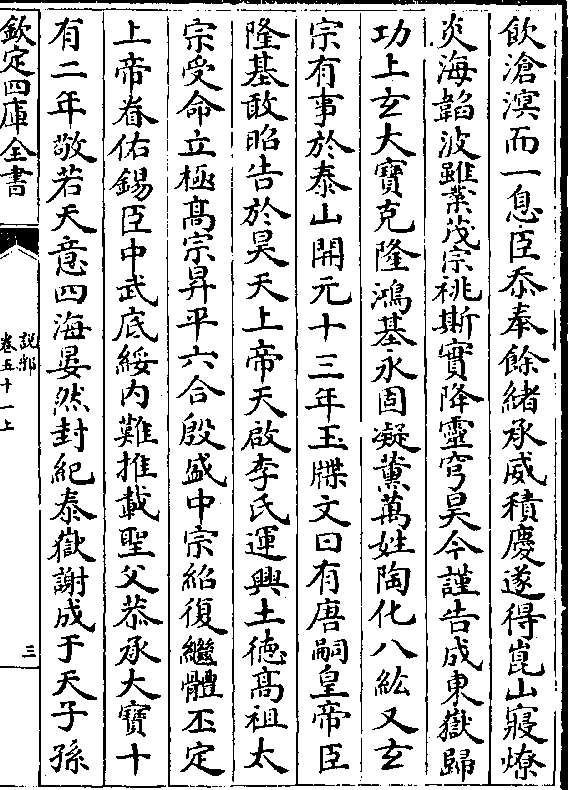 飲滄溟而一息臣忝奉餘緒承威積慶遂得崑山寢燎
炎海韜波雖業茂宗祧斯實降靈穹昊今謹告成東嶽歸
功上玄大寶克隆鴻基永固凝薰萬姓陶化八紘又玄
宗有事於泰山開元十三年玉牒文曰有唐嗣皇帝臣
隆基敢昭告於昊天上帝天啟李氏運興土德髙祖太
宗受命立極髙宗昇平六合殷盛中宗紹復繼體丕定
上帝眷佑錫臣中武底綏内難推載聖父恭承大寶十
有二年敬若天意四海晏然封紀泰嶽謝成于天子孫
欽定四庫全書
說郛
卷五十一上
三